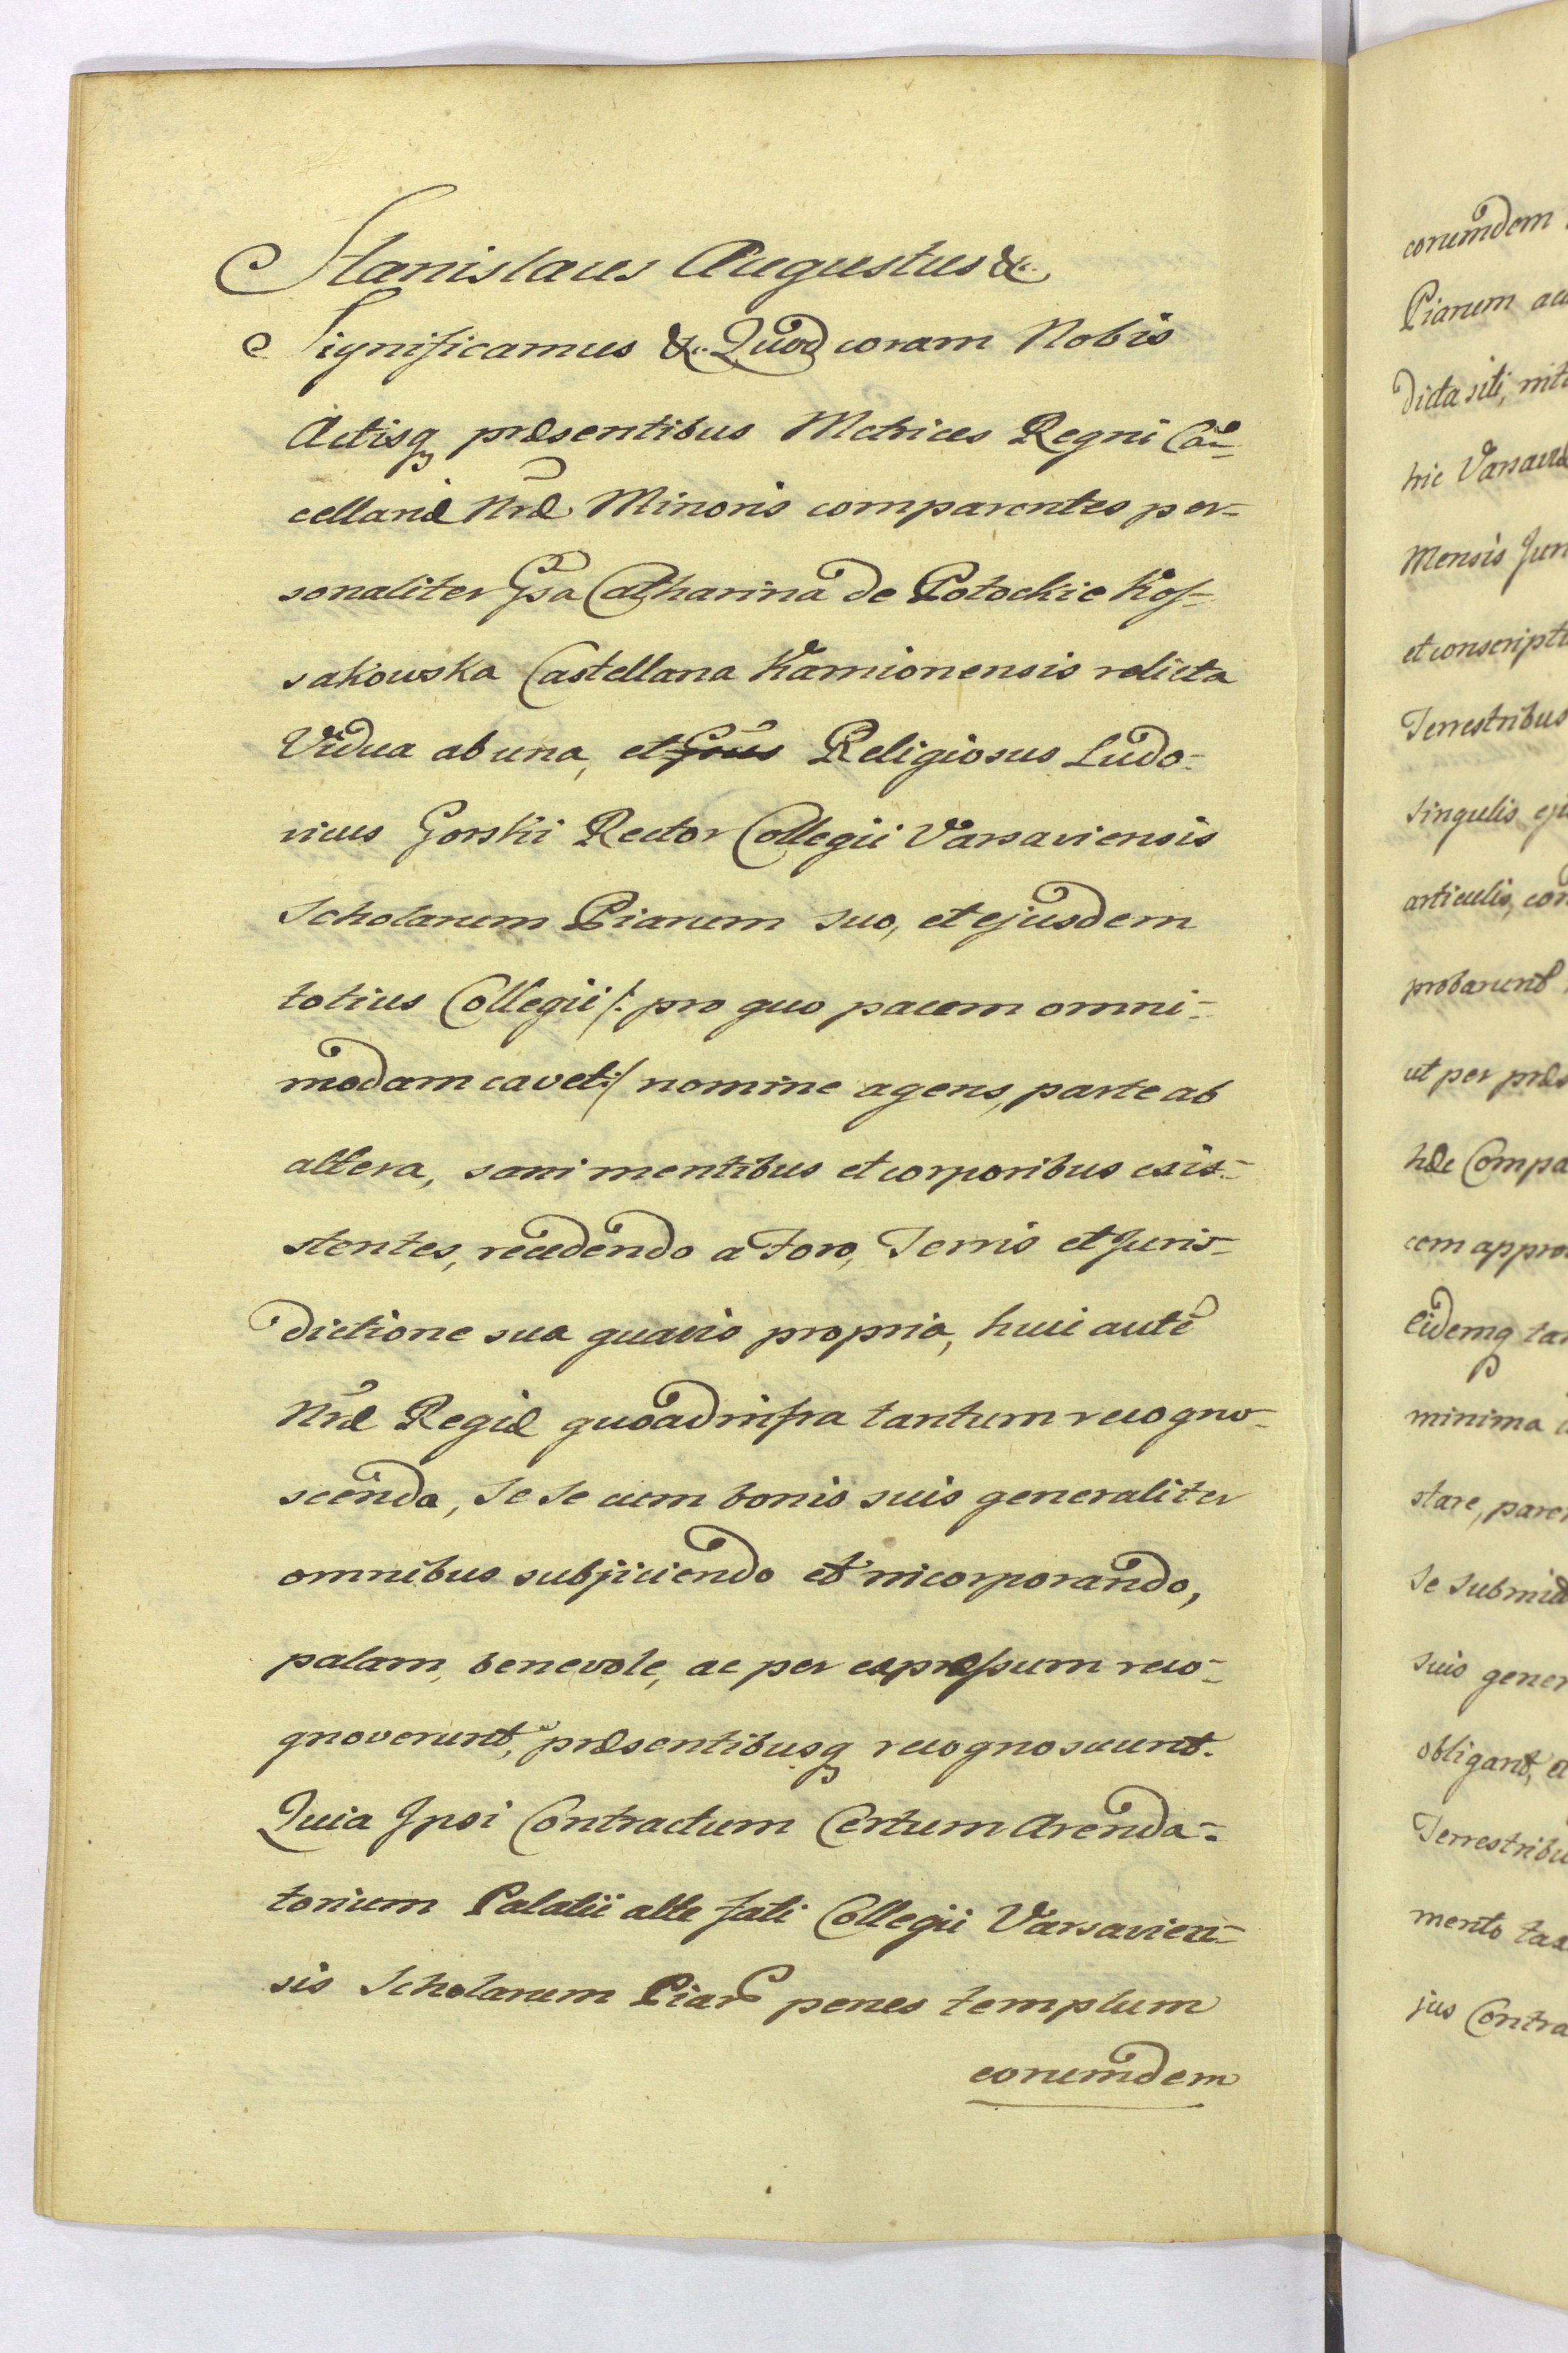 Stanislaus Augustus &c.
Significamus &c. Quod coram Nobis
Actisq præsentibus Metrices Regni Can-
cellariæ Nræ Minoris comparentes per-
sonaliter Gsa Catharina de Potockie Kos-
sakowska Castellana Kamionensis relicta
Vidua ab una, et Religiosus Ludo-
vicus Gorski Rector Collegii Varsaviensis
Scholarum Piarum suo, et ejusdem
totius Collegii /: pro quo pacem omni-
modam cavet :/ nomine agens, parte ab
altera, sani mentibus et corporibus exis-
stentes, recedendo a Foro, Terris et Juris-
dictione sua quavis propria, huic autē
Nræ Regiæ quoad infra tantum recogno-
scenda, se se cum bonis suis generaliter
omnibus subjiciendo et incorporando,
palam, benevole, ac per expressum reco-
gnoverunt, præsentibusq recognoscunt.
Quia Ipsi Contractum Certum Arenda-
torium Palatii alte fati Collegii Varsavien-
sis Scholarum Piar penes templum
eorumdem
eorumdem
Piarum
dicta siti,
hic Varsaviæ
Mensis
et conscript
Terrestribus
singulis
articulis,
probarunt
ut per
Compa
cem appro
Eidemq
minima
stare,
se
suis gener
obligant,
Terrestribu
mento
jus Contra